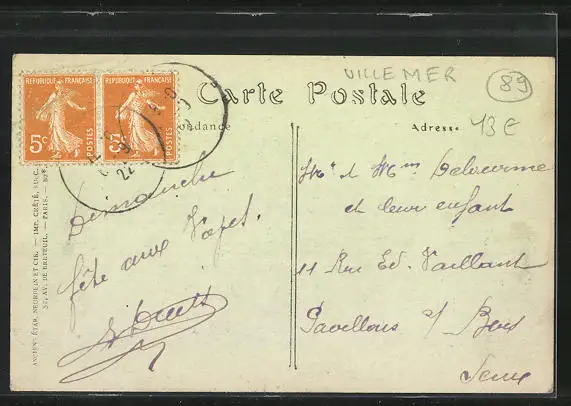 REPUBLIQUE FRANÇAISE
5c
POSTES
REPUBLIQUE FRANÇAISE
POSTES
VILLEMER
89
Carte Postale
Adresse
13 €
Dimanche
fête aux
Mr & Mme
et leur enfant
11 Rue Ed. Vaillant
Pavillons s/ Bois
Seine
22
ANCIENS ÉTAB. NEURDEIN ET CIE. — IMP. CRÉTÉ, SUCC.
52, AV. DE BRETEUIL. — PARIS.